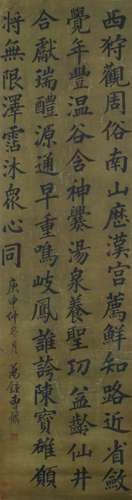 西狩觀周俗南山歷漢宮薦鮮知路近省斂
覺年豐溫谷含神爨湯泉養聖功益齡仙井
合獻瑞醴源通早重鳴岐鳳誰誇陳寶雄願
將無限澤霑沐眾心同
庚申仲冬月